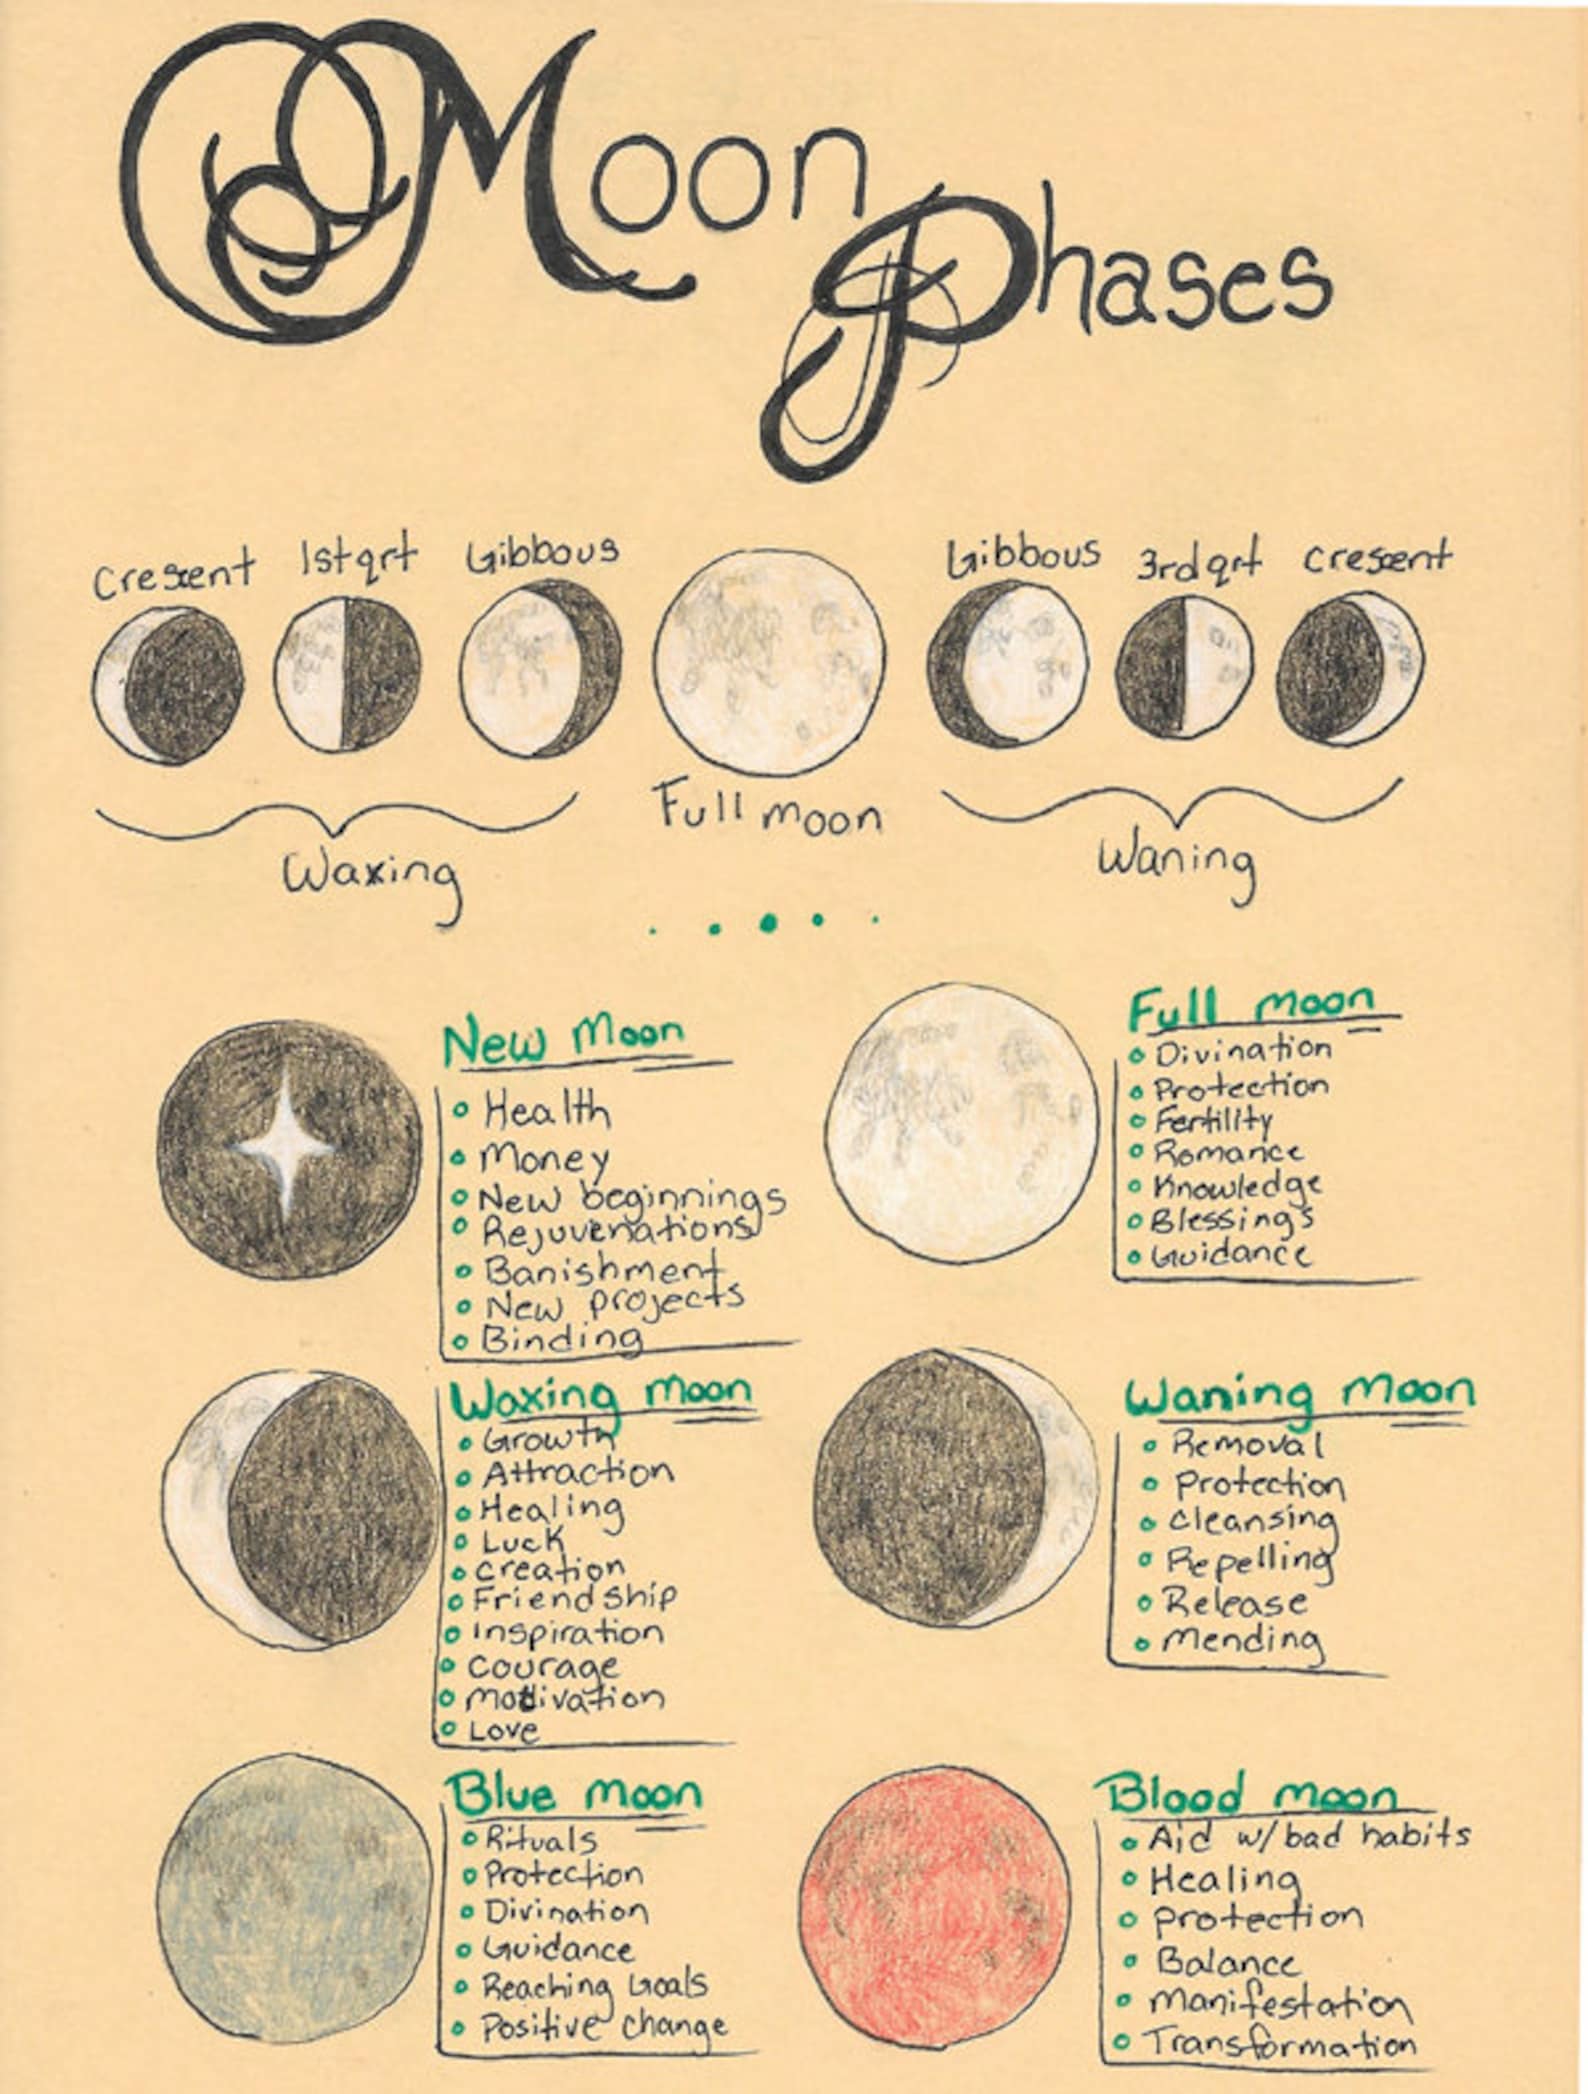 Moon
Phases
Crescent
1st qrt
Gibbous
Gibbous
3rd qrt
crescent
Full moon
Waxing
Waning
New Moon
Health
Money
New beginnings
Rejuvenations
Banishment
New projects
Binding
Full moon
Divination
Protection
Fertility
Romance
Knowledge
Blessings
Guidance
Waxing moon
Growth
Attraction
Healing
Luck
creation
Friendship
Inspiration
courage
motivation
Love
Waning moon
Removal
Protection
cleansing
Repelling
Release
mending
Blue moon
Rituals
Protection
Divination
Guidance
Reaching Goals
Positive change
Blood moon
Aid w/ bad habits
Healing
protection
Balance
manifestation
Transformation